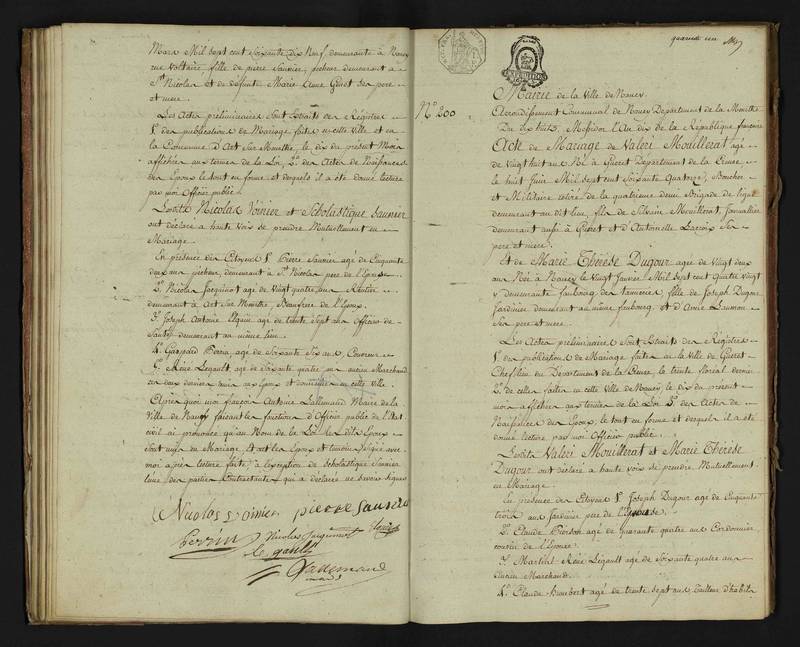 Mars Mil Sept cent Soixante dix Neuf, demeurante à Nancy
rue Voltaire, fille de pierre Saunier, pecheur demeurant à
St Nicolas et de défunte Marie Anne ses pere
et mere.
Les Actes préliminaires Sont Extraits des Régistres
1o des publications de Mariage faites en cette Ville et en
la Commune d'Art Sur Meurthe, le dix du présent Mois
affichées aux termes de la Loi, 2o des Actes de Naissances
des Epoux le tout en forme et desquels il a été donné lecture
par moi Officier public.
Lesdits Nicolas Voinier et Scholastique Saunier
ont déclaré à haute Voix se prendre Mutuellement en
Mariage.
En présence des Citoyens 1o Pierre Saunier agé de Cinquante
deux ans pecheur, demeurant à St Nicolas pere de l'Epouse
2o Nicolas Jacquinot agé de Vingt quatre ans Rentier
demeurant à Art Sur Meurthe, Beaufrere de l'Epoux.
3o Joseph Antoine agé de trente Sept ans Officier de
Santé demeurant au même lieu
4o Gaspard Perrin agé de Soixante Six ans, Couvreur
5o René Légault agé de Soixante quatre ans ancien Marchand
ces deux derniers amis aux Epoux et domiciliés en cette Ville.
Après quoi moi françois Antoine Lallemand Maire de la
Ville de Nancy faisant les fonctions d'Officier public de l'Etat
civil ai prononcé qu'au Nom de la Loi lesdits Epoux
Sont unis en Mariage, et ont les Epoux et témoins Signé avec
moi après lecture faite, à l'exception de Scholastique Saunier
l'une des parties Contractantes qui a déclaré ne Savoir Signer
Nicolas voinier pierre Saunier
perrin Nicolas Jacquinot
le gault
Lallemand
maire
quarante un
No 200
Mairie de la Ville de Nancy.
Arrondissement Communal de Nancy Département de la Meurthe
Du dix huit, Messidor l'An dix de la République française
Acte de Mariage de Valeri Mouillerat agé
de Vingt huit ans Né à Gueret Département de la Creuse
le huit Juin Mil Sept cent Soixante Quatorze, Boucher
et Militaire retiré de la quatrieme demi Brigade de ligne
demeurant audit lieu, fils de Silvain Mouillerat, Journallier
demeurant aussi à Gueret et d'Antoinette Lacroix Ses
pere et mere.
Et de Marie Thérèse Dugour agée de Vingt deux
ans Née à Nancy le Vingt Janvier Mil Sept cent Quatre Vingt
y demeurante faubourg des tanneries fille de Joseph Dugour
Jardinier demeurant au même faubourg et d'Anne Laumon
Ses pere et mere.
Les Actes préliminaires Sont Extraits des Régistres
1o des publications de Mariage faites en la Ville de Gueret
Cheflieu du Département de la Creuse le trente floréal dernier
2o de celles faites en cette Ville de Nancy, le dix du présent
mois affichées aux termes de la Loi 3o des Actes de
Naissances des Epoux, le tout en forme et desquels il a été
donné lecture par moi Officier public.
Lesdits Valeri Mouillerat et Marie Thérèse
Dugour ont déclaré à haute voix se prendre Mutuellement
en Mariage.
En présence des Citoyens 1o Joseph Dugour agé de Cinquante
trois ans Jardinier pere de l'Epouse.
2o Claude Pierson agé de quarante quatre ans Cordonnier,
cousin de l'Epouse.
3o Martial René Légault agé de Soixante quatre ans
ancien Marchand.
4o Claude Humbert agé de trente Sept ans Tailleur d'habits